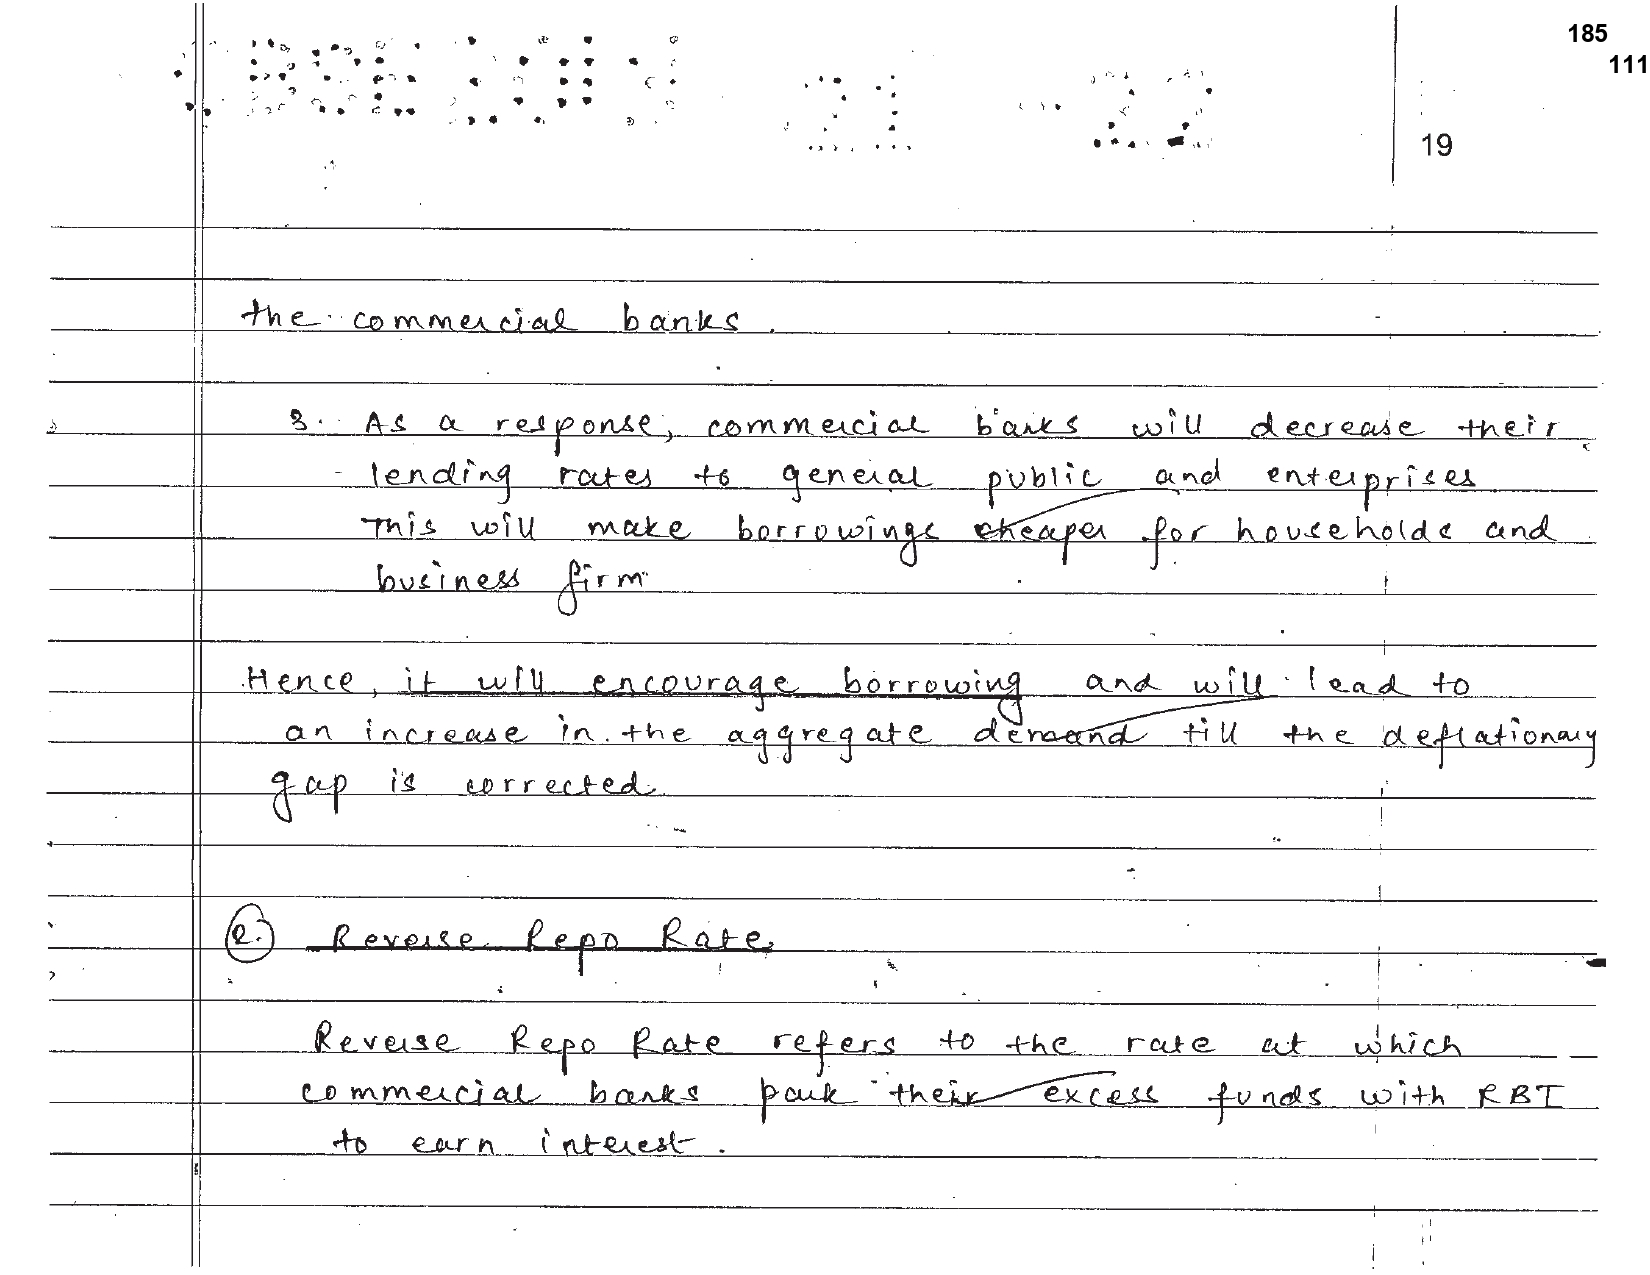 185
111
CBSE DIN 21 - 22
19
the commercial banks.
3. As a response, commercial banks will decrease their
lending rates to general public and enterprises
This will make borrowings cheaper for households and
business firm
Hence, it will encourage borrowing and will lead to
an increase in the aggregate demand till the deflationary
gap is corrected.
2. Reverse Repo Rate
Reverse Repo Rate refers to the rate at which
commercial banks park their excess funds with RBI
to earn interest.